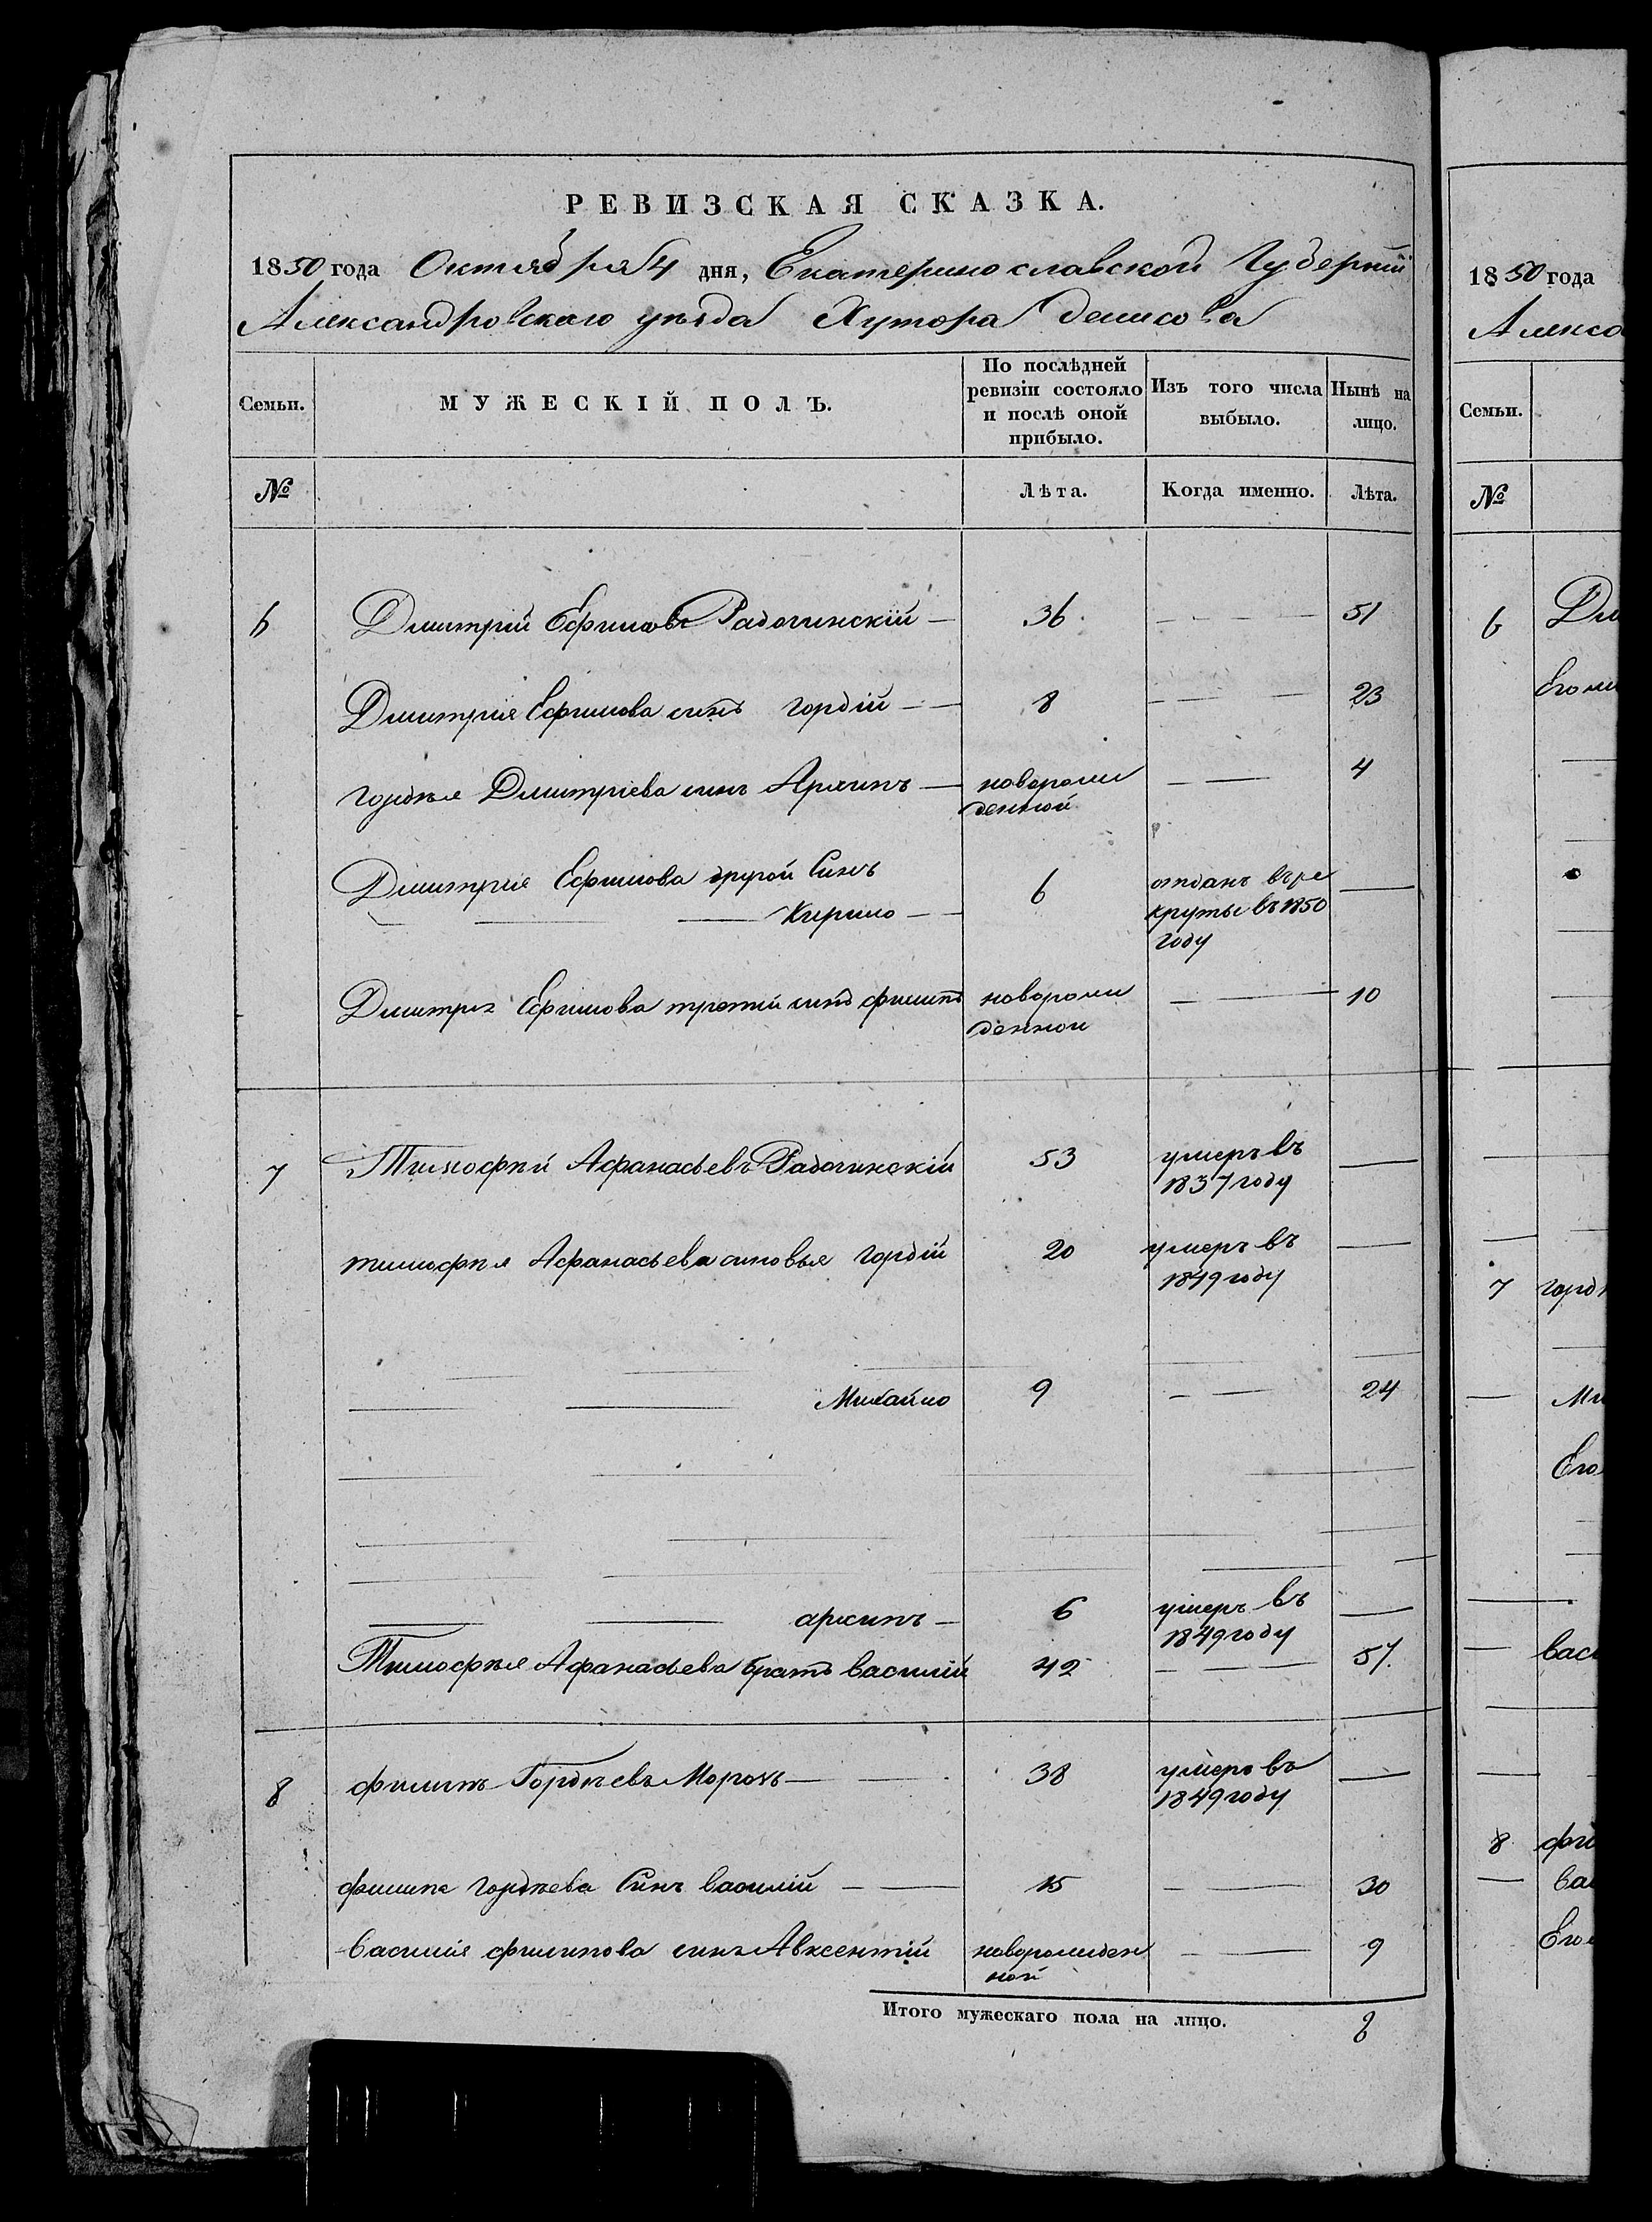 РЕВИЗСКАЯ СКАЗКА.
1850 года Октября 4 дня, Екатеринославской Губерніи
Александровскаго уѣзда Хутора Денисова
Семьи.
МУЖЕСКІЙ ПОЛЪ.
По послѣдней ревизіи состояло и послѣ оной прибыло.
Изъ того числа выбыло.
Нынѣ на лицо.
№
Лѣта.
Когда именно.
Лѣта.
6 Дмитрій Ефимовъ 36 51
Дмитрія Ефимова синъ Гордій 8 23
Гордѣя Дмитріева синъ Архипъ новорож 4
денной
Дмитрія Ефимова другой Синъ 6 отданъ въ ре
Кирило круты въ 1850
году
Дмитрія Ефимова третій синъ филипъ новорож 10
денной
7 Тимофѣй Афанасьевъ 53 умеръ въ
1837 году
тимофѣя Афанасьева синовья гордій 20 умеръ въ
1849 году
Михайло 9 24
архипъ 6 умеръ въ
1849 году
Тимофѣя Афанасьева братъ василій 42 57
8 филипъ Гордѣевъ Морозъ 38 умеръ въ
1849 году
филипа гордѣева Синъ василій 15 30
василія филипова синъ Авксентій новорожден 9
ной
Итого мужескаго пола на лицо. 8
1850 года
Алекса
Семьи.
№
6 Дм
Его
7 горд
Ми
Его
вас
8 фи
ва
Его